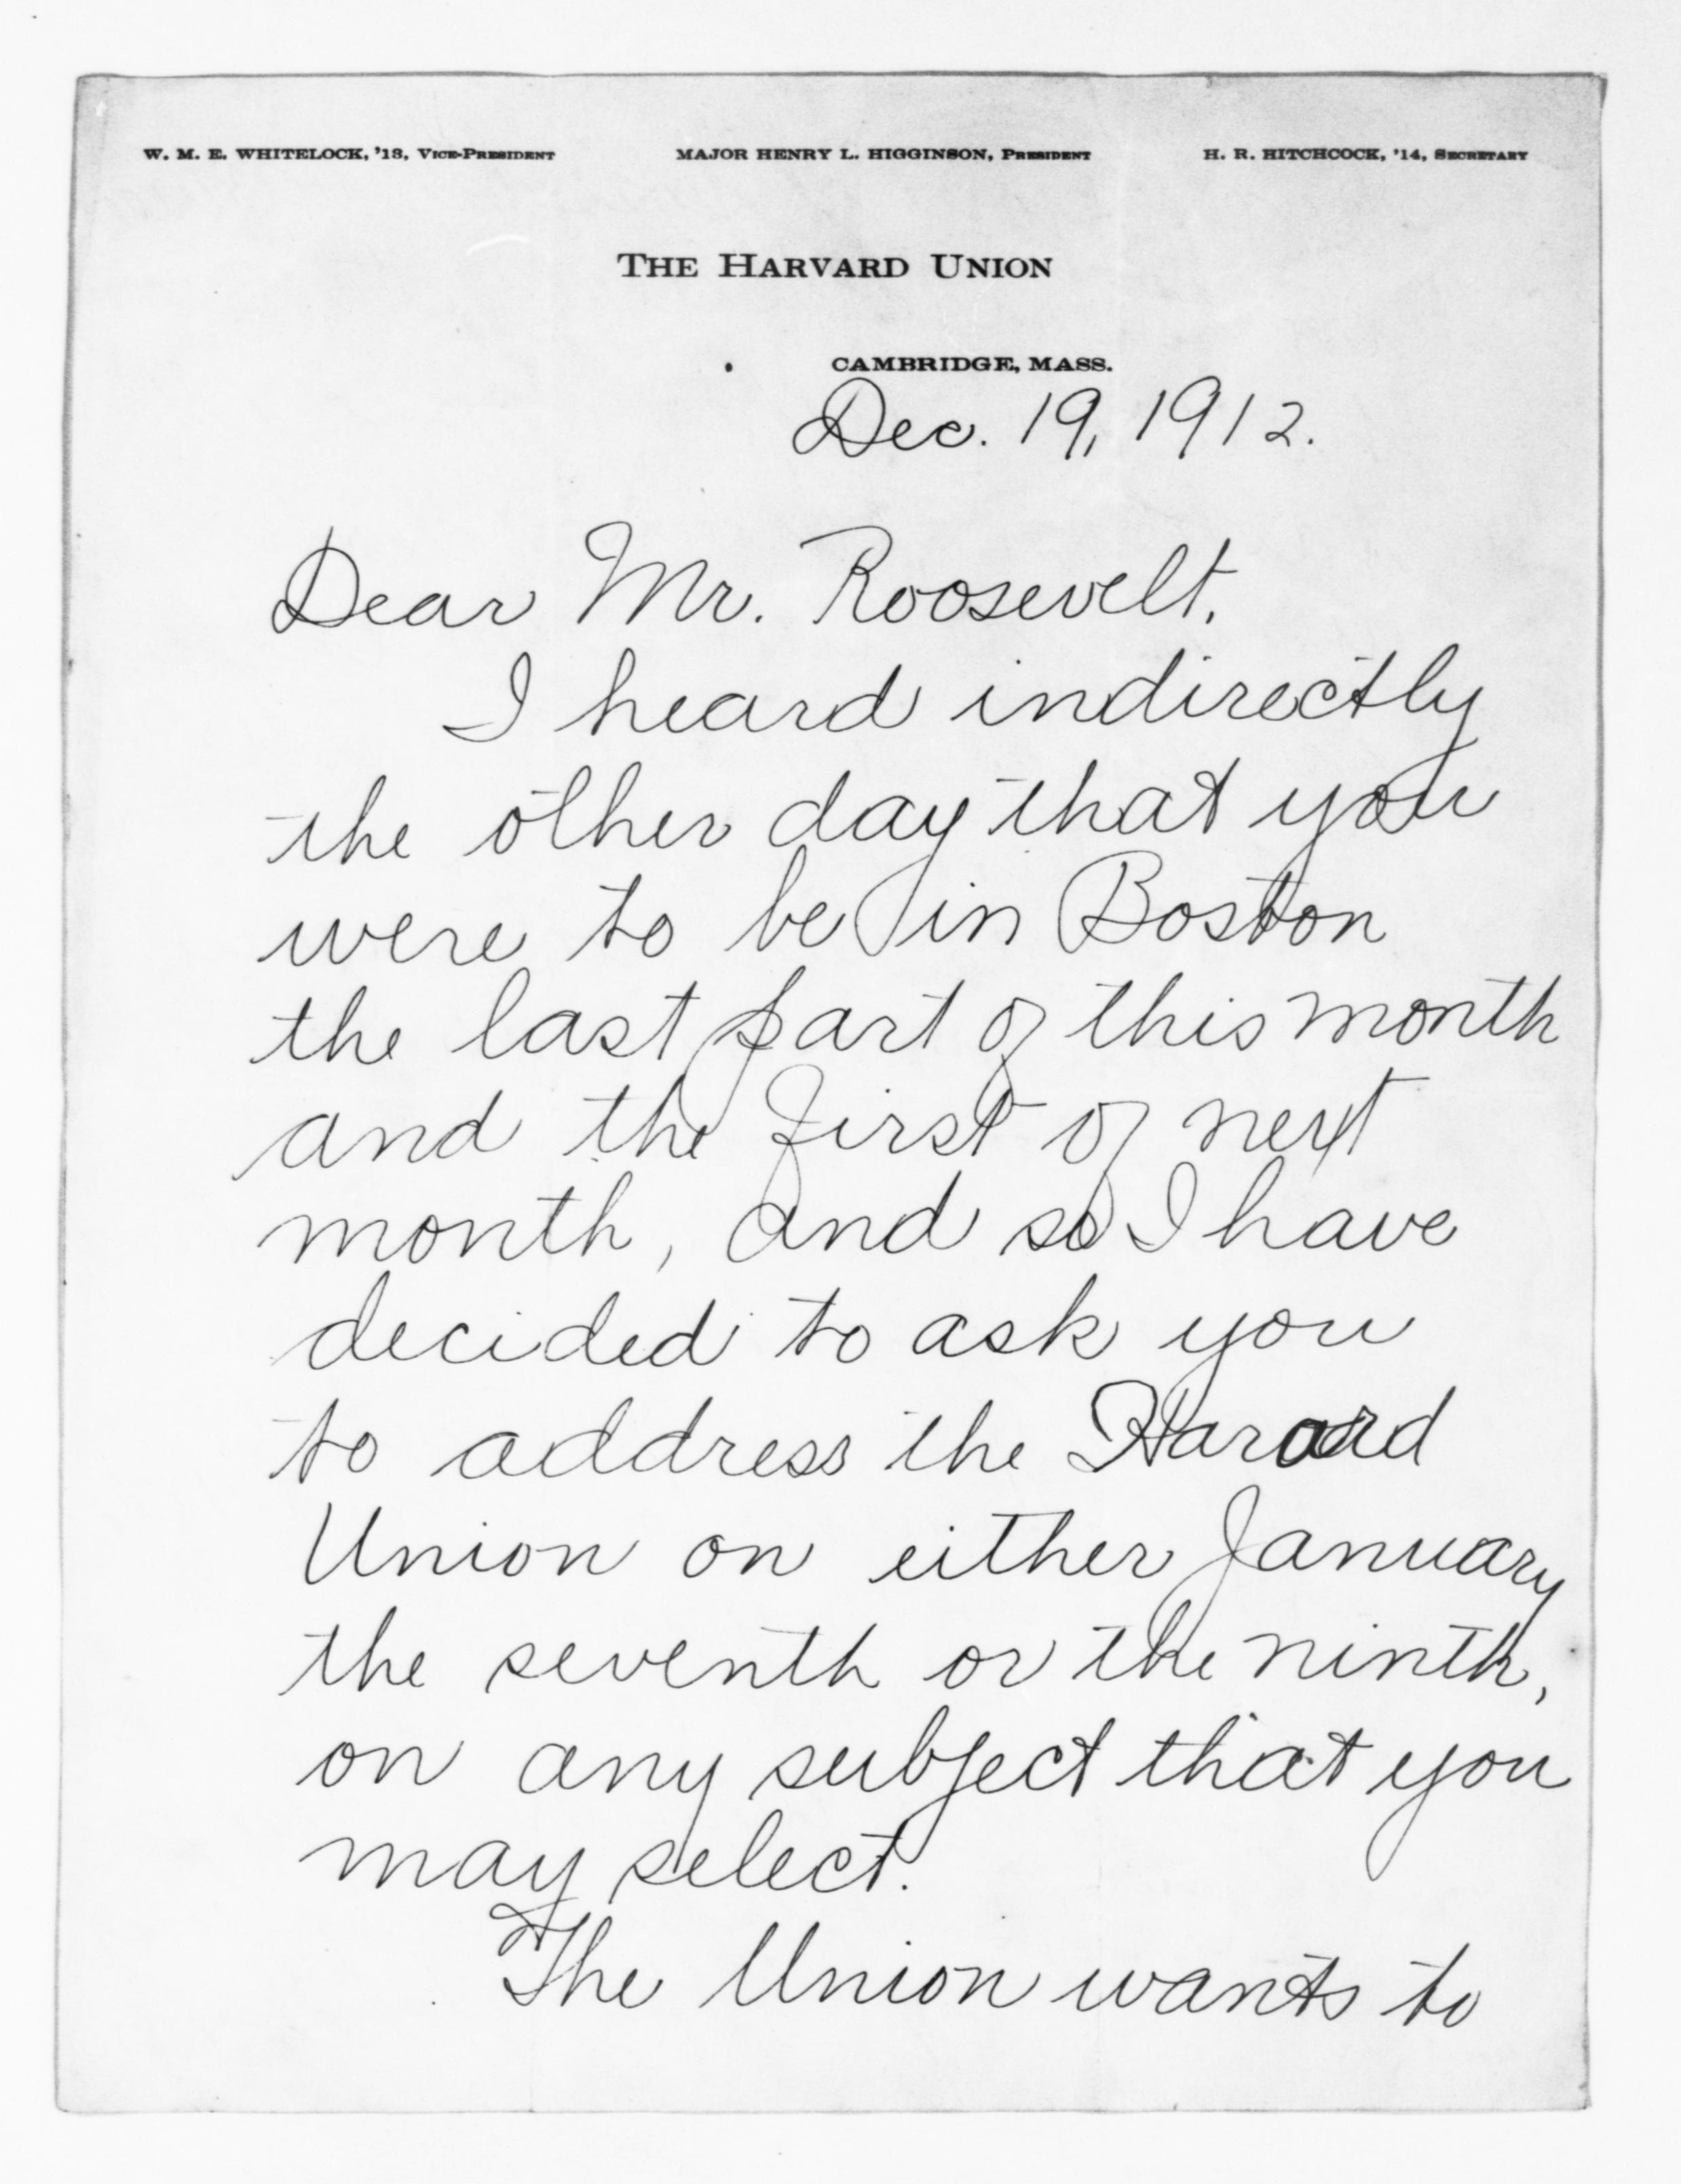 W. M. E. WHITELOCK, '13, VICE-PRESIDENT MAJOR HENRY L. HIGGINSON, PRESIDENT H. R. HITCHCOCK, '14, SECRETARY
THE HARVARD UNION
CAMBRIDGE, MASS.
Dec. 19, 1912.
Dear Mr. Roosevelt,
I heard indirectly
the other day that you
were to be in Boston
the last part of this month
and the first of next
month, and so I have
decided to ask you
to address the Harvard
Union on either January
the seventh or the ninth,
on any subject that you
may select.
The Union wants to